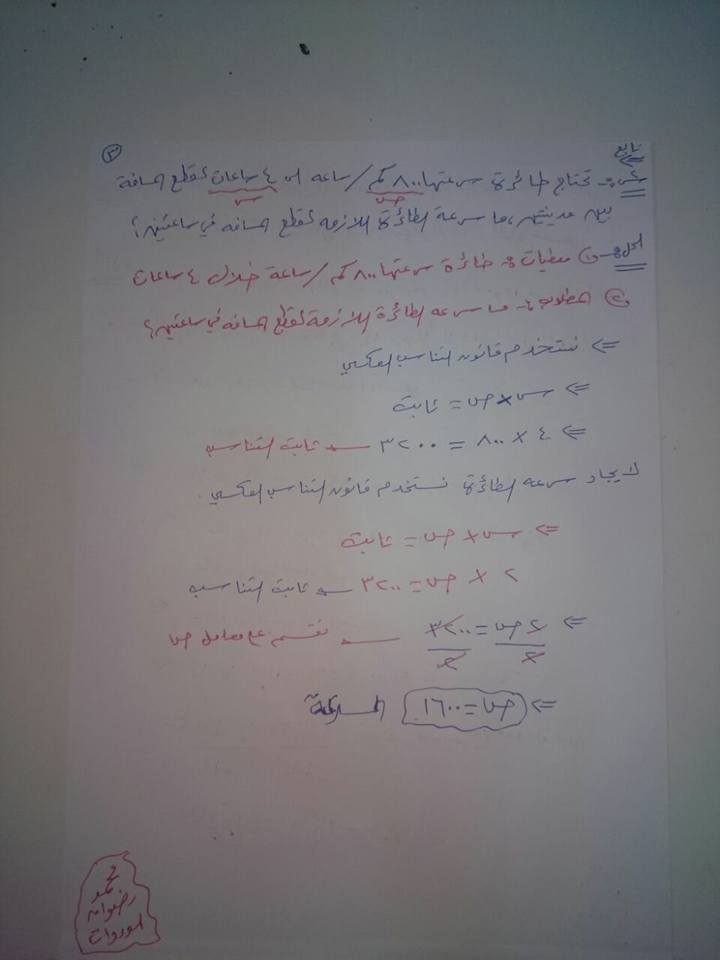 تابع
٣
س:- تحتاج طائرة سرعتها ٨٠٠ كم/ساعه الى ٤ ساعات لقطع المسافة
ص س
بين مدينتين، ما سرعة الطائرة اللازمه لقطع المسافه في ساعتين؟
الحل :- ① معطيات :- طائرة سرعتها ٨٠٠ كم/ساعة خلال ٤ ساعات
② المطلوب :- ما سرعه الطائرة اللازمة لقطع المسافه في ساعتين؟
⇐ نستخدم قانون التناسب العكسي
⇐ س × ص = ثابت
⇐ ٤ × ٨٠٠ = ٣٢٠٠ ← ثابت التناسب
لايجاد سرعه الطائرة نستخدم قانون التناسب العكسي
⇐ س × ص = ثابت
٢ × ص = ٣٢٠٠ ← ثابت التناسب
⇐ ٢ ص = ٣٢٠٠ ← نقسم على معامل ص
٢ ٢
⇐ ص = ١٦٠٠ السرعة
محمد
رضوان